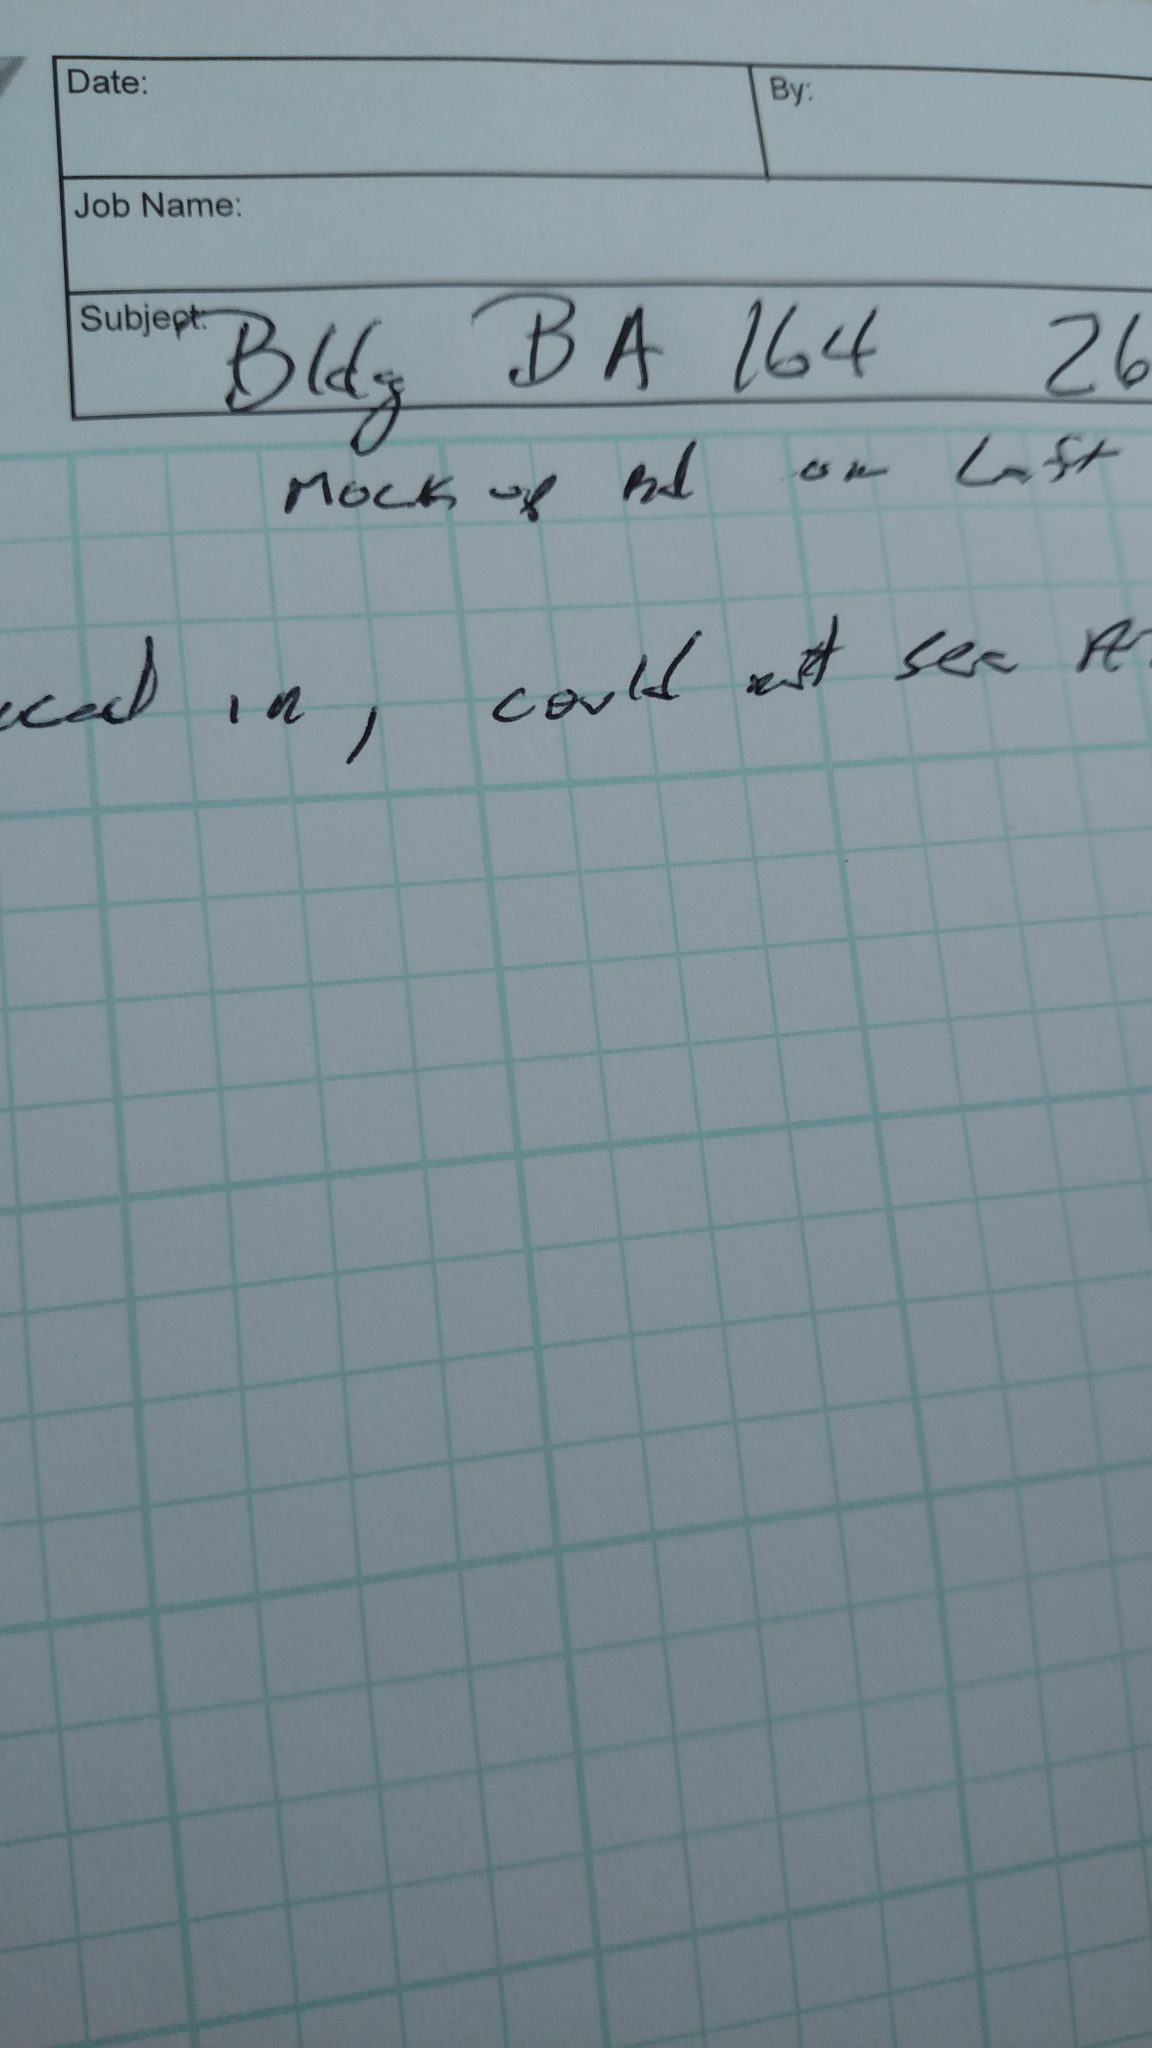 Date: By:
Job Name:
Subject: Bldg BA 164 26
Mock up Bd on Left
in, could not see